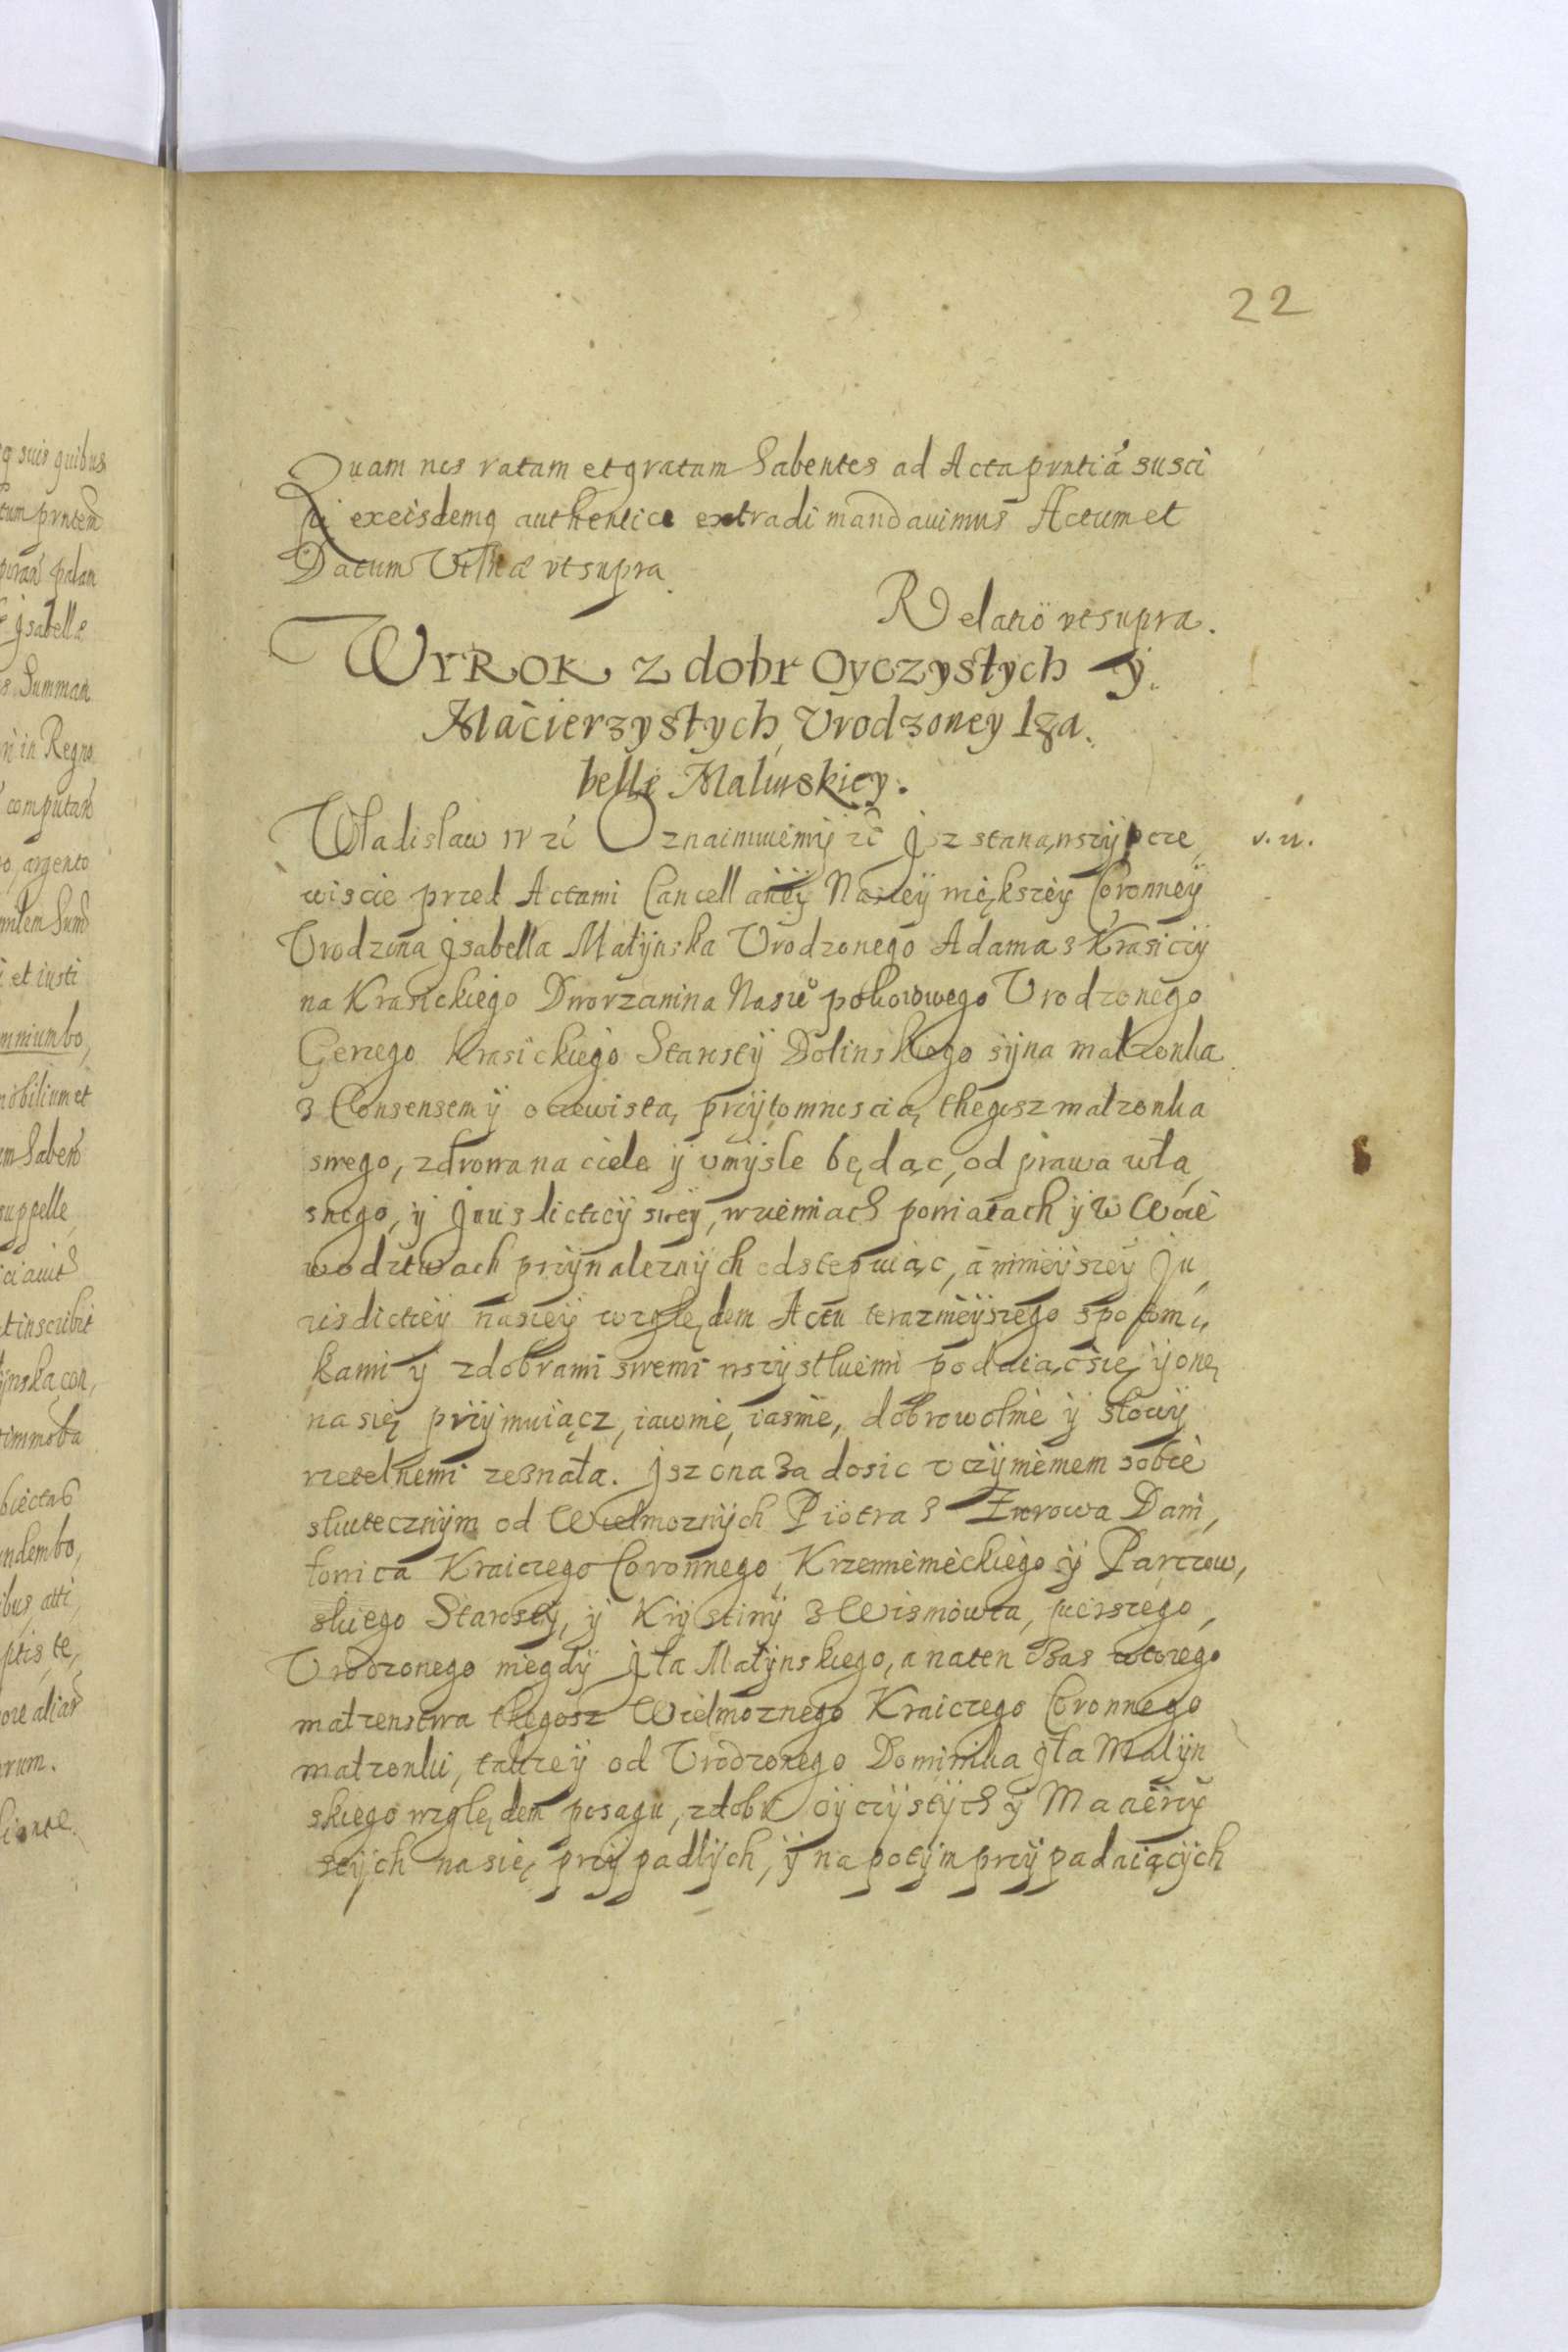 22
Quam nos ratam et gratam habentes ad Acta prntiā susci
pi ex eisdemq authentice extradi mandauimus Actum et
Datum Vilnæ vt supra
Relatio vt supra.
WYROK z dobr Oyczystych y
Macierzystych Vrodzoney Iza
belle Malinskiey.
Wladislaw IV zć Oznaimuiemy zć Jsz stanąwszy ocze
v. u.
wiscie przed Actami Cancellariey Naszey większey Coronney
Vrodzona Jsabella Małynska Vrodzonego Adama z Krasiczy
na Krasickiego Dworzanina Nasze° pokoiowego Vrodzonego
Gerzego Krasickiego Starosty Dolinskiego syna małzonka
z Consensem y oczewistą przytomnoscią thegosz małzonka
swego, zdrowa na ciele y vmysle będąc, od prawa wła
snego, y Jurisdictiey swey, w ziemiach powiatach y w Woie
wodztwach przynaleznych odstepuiąc, a ninieyszey Ju
risdictiey naszey względem Actu teraznieyszego spotom
kami y z dobrami swemi wszystkiemi poddaiąc się, y onę
na się przyimuiącz, iawnie, iasnie, dobrowolnie y słowy
rzetelnemi zeznała. Jsz ona za dosic vczynieniem sobie
skutecznym od Wielmoznych Piotra z Zurowa Dani
łowica Kraiczego Coronnego, Krzemienieckiego y Parczow
skiego Starosty, y Krystiny z Wisniowca, pierszego
Vrodzonego niegdy Jła Małynskiego, a na ten Czas wtorego
małzenstwa thegosz Wielmoznego Kraiczego Coronnego
małzonki, takzey od Vrodzonego Dominika Jła Małyn
skiego względem posagu, z dobr oyczystych y Macierzy
stych na się przypadłych, y na potym przypadaiących
q suis quibus
tum prntem
palam
Jsabellæ
Summam
in Regno
computan
argento
et iusti
mnium bo
mobilium et
suppelle
t inscribit
ynska con
immota
ndem bo
ptis, te